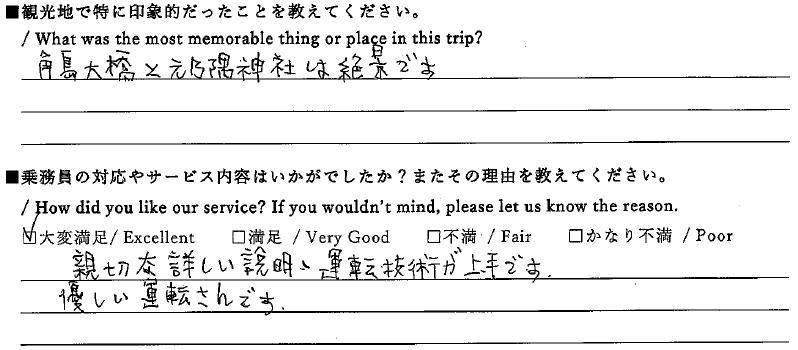 ■観光地で特に印象的だったことを教えてください。
/ What was the most memorable thing or place in this trip?
角島大橋と元乃隅神社は絶景です
■乗務員の対応やサービス内容はいかがでしたか?またその理由を教えてください。
/ How did you like our service? If you wouldn't mind, please let us know the reason.
☑大変満足/ Excellent □満足 / Very Good □不満 / Fair □かなり不満 / Poor
親切な詳しい説明、運転技術が上手です.
優しい運転さんです.